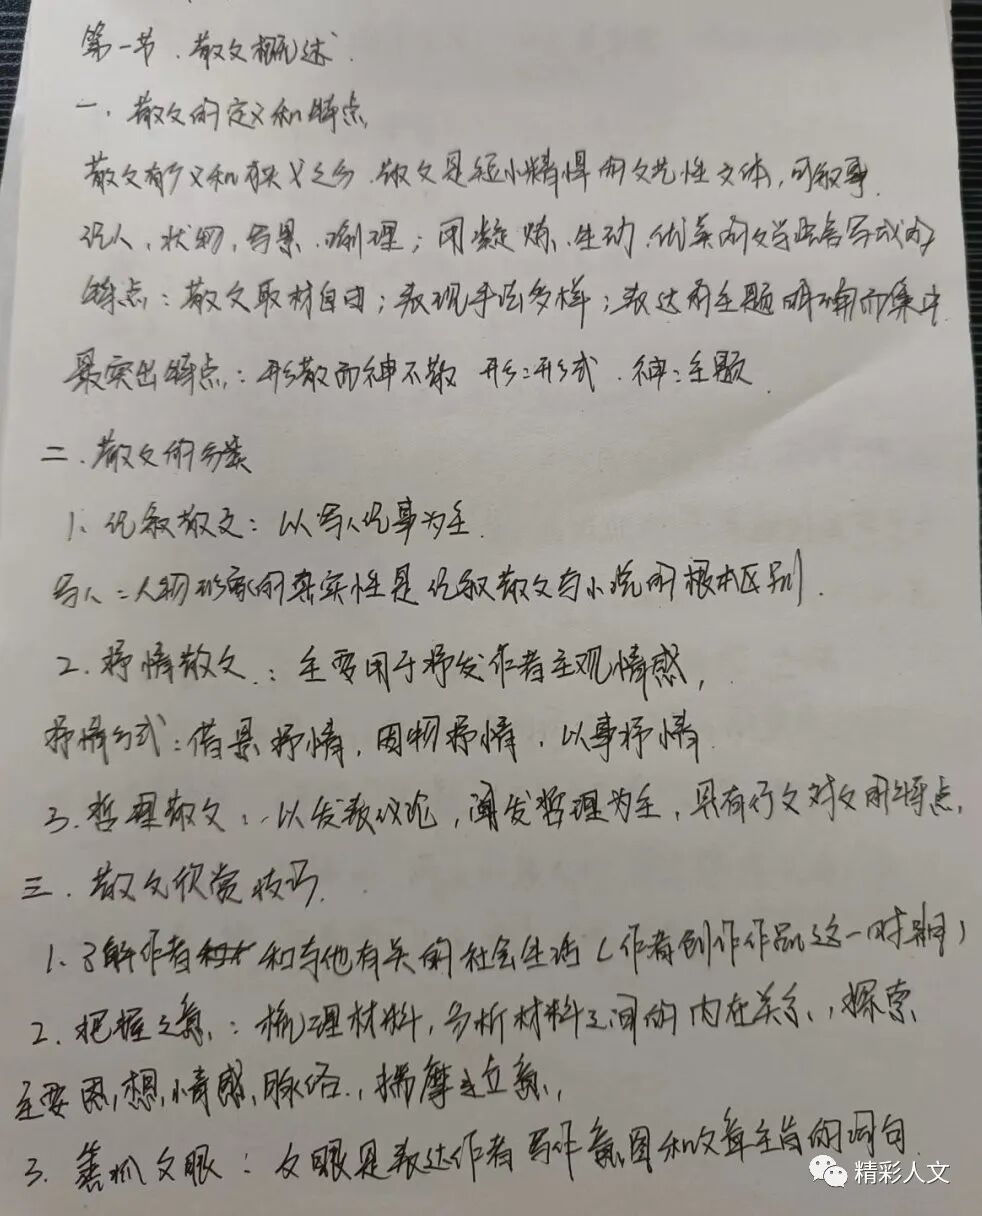 第一节.散文概述.
一.散文的定义和特点
散文有广义和狭义之分.散文是短小精悍的文艺性文体,可叙事.
记人、状物、写景、喻理;用凝炼、生动、优美的文学语言写成的
特点:散文取材自由;表现手法多样;表达的主题明确而集中.
最突出特点:形散而神不散 形:形式.神:主题.
二.散文的分类
1、记叙散文:以写人记事为主.
写人:人物形象的真实性是记叙散文与小说的根本区别.
2.抒情散文:主要用于抒发作者主观情感,
抒情方式:借景抒情,因物抒情.以事抒情.
3.哲理散文:以发表议论,阐发哲理为主,具有行文对文的特点.
三.散文欣赏技巧.
1、了解作者和与他有关的社会生活(作者创作作品这一时期)
2.把握立意:梳理材料,分析材料之间的内在关系,探索
主要思想,情感、脉络,揣摩立意,
3.善抓文眼:文眼是表达作者写作意图和文章主旨的词句.
精彩人文